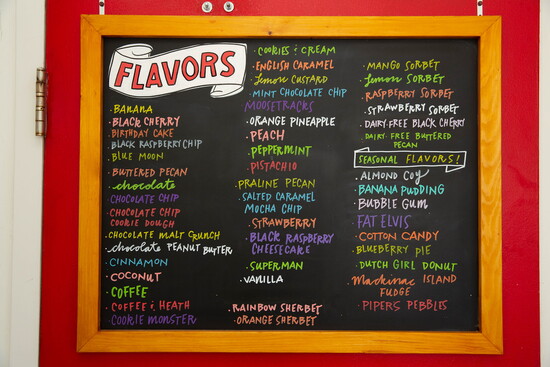 FLAVORS
· BANANA
· BLACK CHERRY
· BIRTHDAY CAKE
· BLACK RASPBERRY CHIP
· BLUE MOON
· BUTTERED PECAN
· chocolate
· CHOCOLATE CHIP
· CHOCOLATE CHIP
COOKIE DOUGH
· CHOCOLATE MALT CRUNCH
· chocolate PEANUT BUTTER
· CINNAMON
· COCONUT
· COFFEE
· COFFEE & HEATH
· COOKIE MONSTER
· COOKIES & CREAM
· ENGLISH CARAMEL
· Lemon CUSTARD
· MINT CHOCOLATE CHIP
MOOSETRACKS
· ORANGE PINEAPPLE
· PEACH
· PEPPERMINT
· PISTACHIO
· PRALINE PECAN
· SALTED CARAMEL
MOCHA CHIP
· STRAWBERRY
· BLACK RASPBERRY
CHEESECAKE
· SUPERMAN
· VANILLA
· RAINBOW SHERBET
· ORANGE SHERBET
· MANGO SORBET
· Lemon SORBET
· RASPBERRY SORBET
· STRAWBERRY SORBET
· DAIRY-FREE BLACK CHERRY
· DAIRY-FREE BUTTERED
PECAN
SEASONAL FLAVORS!
· ALMOND COY
· BANANA PUDDING
· BUBBLE GUM
· FAT ELVIS
· COTTON CANDY
· BLUEBERRY PIE
· DUTCH GIRL DONUT
· Mackinac ISLAND
FUDGE
· PIPERS PEBBLES